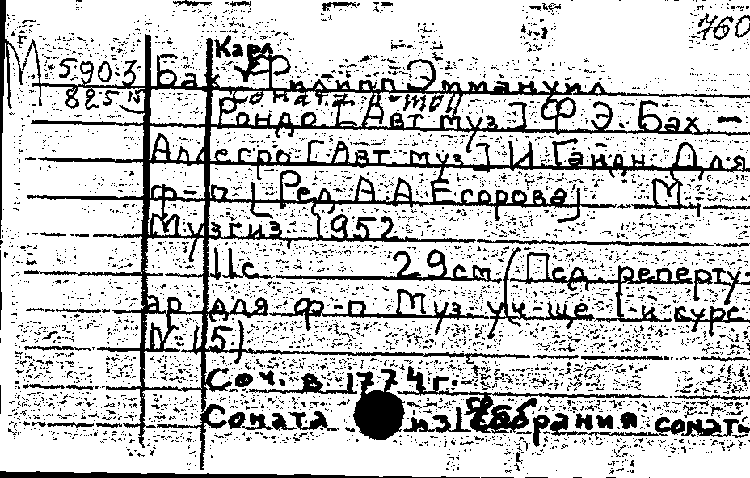 760
Карл
М 590-3 Бах Филипп Эммануил
825 Соната h-moll
Рондо [Авт муз.] Ф Э. Бах –
Аллегро [Авт. муз.] И. Гайдн Для
ф-п [Ред. А.А. Егорова] М.,
Музгиз, 1952
11 с 29 см (Пед. реперту
ар для ф-п Муз. уч-ще I-й курс
№ 15)
Соч. в 1774 г.
Соната из собрания сонаты